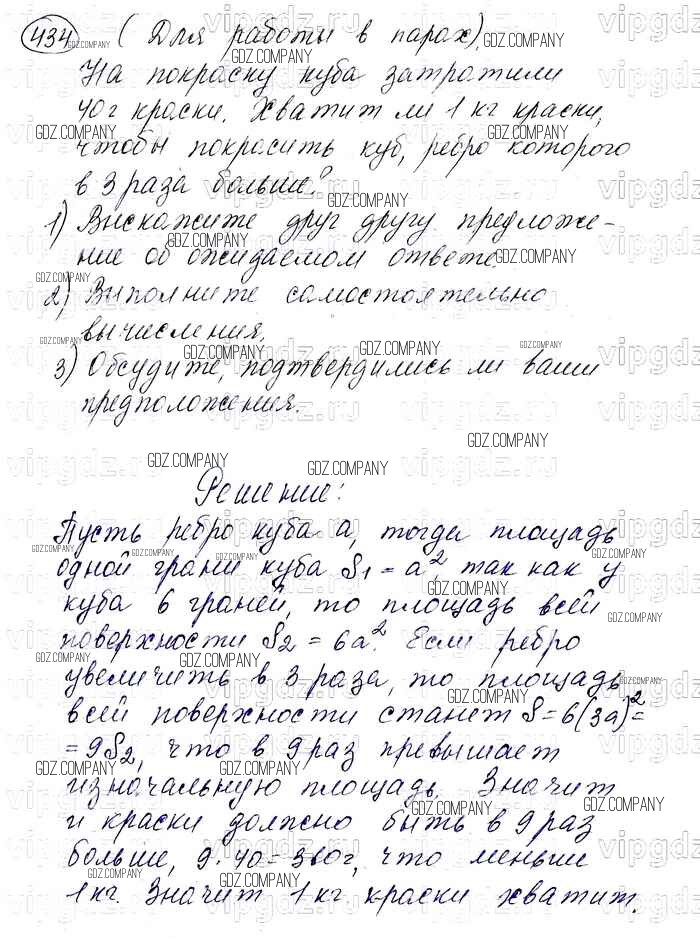 434 (Для работы в парах).
На покраску куба затратили
40г краски. Хватит ли 1 кг краски,
чтобы покрасить куб, ребро которого
в 3 раза больше?
1) Выскажите друг другу предложе-
ние об ожидаемом ответе.
2) Выполните самостоятельно
вычисления.
3) Обсудите, подтвердились ли ваши
предположения.
Решение:
Пусть ребро куба а, тогда площадь
одной грани куба S1 = a², так как у
куба 6 граней, то площадь всей
поверхности S2 = 6a². Если ребро
увеличить в 3 раза, то площадь
всей поверхности станет S = 6(3a)² =
= 9S2, что в 9 раз превышает
изначальную площадь. Значит
и краски должно быть в 9 раз
больше, 9 · 40 = 360г, что меньше
1 кг. Значит 1 кг краски хватит.